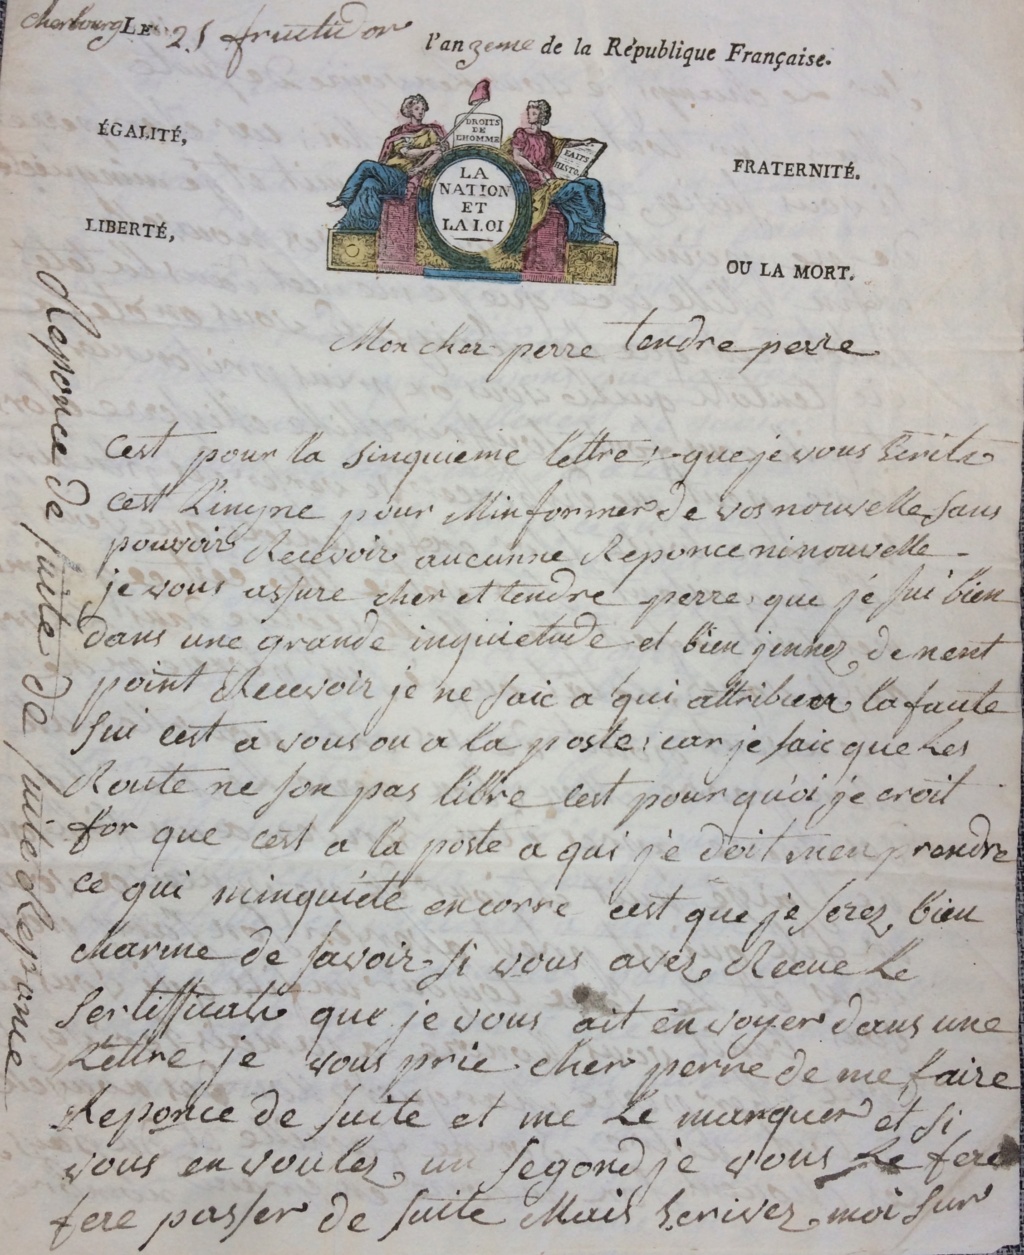 Cherbourg LE 25 fructidor l'an 3eme de la République Française.
ÉGALITÉ,
LIBERTÉ,
DROITS
DE
L'HOMME
LA
NATION
ET
LA LOI
FAITS
HISTO.
FRATERNITÉ.
OU LA MORT.
Mon cher perre tendre perre
Cest pour la sinquieme lettre que je vous Ecrits
cest pour Minformer de vos nouvelle sans
pouvoir Recevoir aucunne Reponce ni nouvelle
je vous assure cher et tendre perre que je sui bien
dans une grande inquietude et bien de nent
point Recevoir je ne saic a qui attribuer la faute
sui cest a vous ou a la poste car je saic que Les
Route ne son pas libre cest pour quoi je croit
for que cest a la poste a qui je doit men prendre
ce qui minquiete encorre cest que je serez bien
charme de savoir si vous avez Recue Le
Sertifficats que je vous ait envoyer dans une
Lettre je vous prie cher perre de me faire
Reponce de suite et me Le marquer et si
vous en voulez un segond je vous Le fere
fere passer de suite Mais Ecrivez moi sur
Reponce de suite de suite Reponce